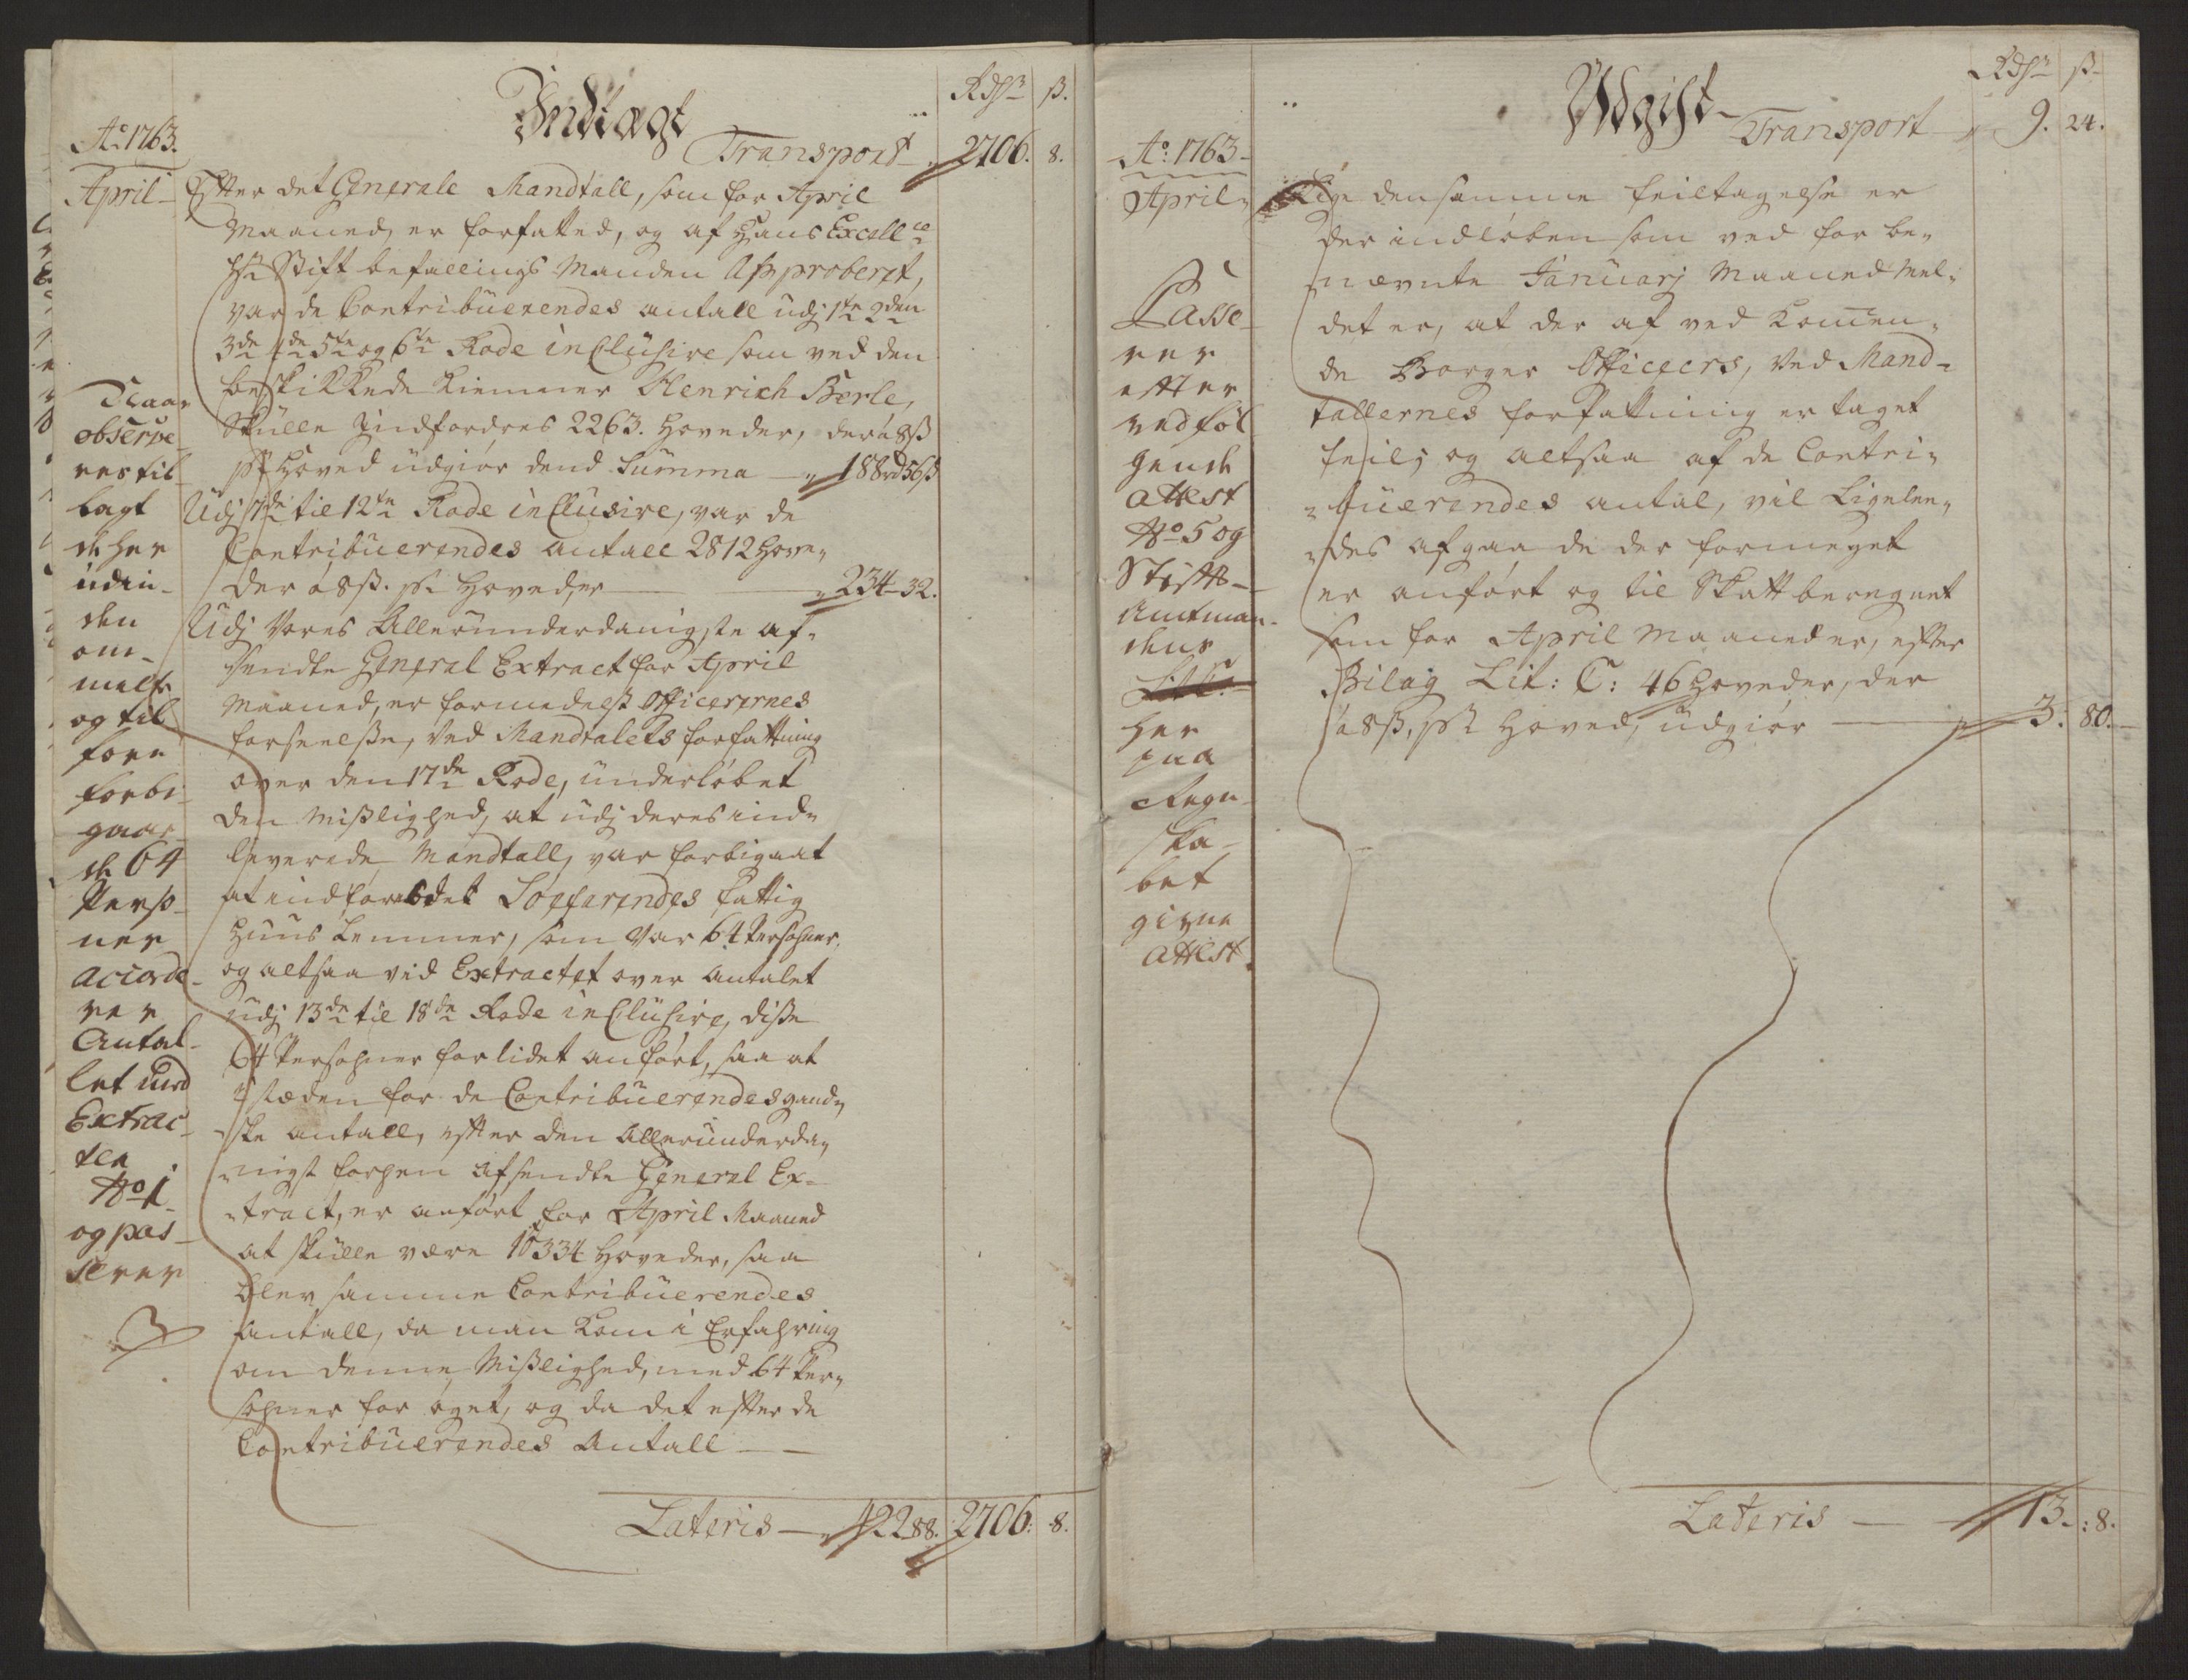 Indtægt
Rdlr ß.
Ao 1763.
Transport 2706. 8.
April
Efter det Generale Mandtall, som for April
Maaned, er forfatted, og af Hans Excellce
Hr Stift befallings Manden Approberet,
var de Contribuerendes antall udj 1te 2den
3de 4de 5te og 6te Rode inclusive som ved den
beskikkede Kiemner Henrich Børle,
Skulle Indfordres 2263. Hoveder, der a 8ß
pr Hoved udgiør dend Summa 188rd 56ß
Udj 7de til 12te Rode inclusive, var de
Contribuerendes antall 2812 Hove„
der a 8ß. pr Hoveder 234-32.
Udj Vores Allerunderdanigste af„
sendte General Extract for April
Maaned, er formedelst Officerernes
forseelße, Ved Mandtalets forfattning
over den 17de Rode, underløbet
den Mißlighed, at udj deres ind„
leverede Mandtall, var forbigaat
at indføre det Søefarendes fattig
Huus Lemmer, som Var 64 Persohner,
og altsaa vid Extractet over Antalet
udj 13de til 18de Rode inclusive, diße
64 Persohner for lidet anført, saa at
i stæden for de Contribuerendes gand„
ske antall, efter den Allerunderda„
nigst forhen afsendte General Ex„
tract, er anført for April Maaned
at skulle være 10334 Hoveder, saa
blev samme Contribuerendes
Antall, da man kom i Erfahring
om denne Mißlighed, med 64 Per„
sohner for øget, og da det efter de
Contribuerendes Antall
Lateris 422 88. 2706: 8.
Naar
observe
res til
lagt
de her
uden
den
om
melte
og til
forn
forbi
gaae
de 64
Perso
ner
accorde
rer
Antal
let med
Extrac
ten
No 1
og pas
serer
Udgift
Rdlr ß
Transport 9. 24.
Ao: 1763
April
Lige densamme feiltagelse er
der indløben som ved for be„
nævnte Januarj Maaned Mel„
det er, at der af ved Kommen„
de Borger Officeers, Ved Mand„
tallernes forfattning er taget
feil; og altsaa af de Contri„
buerendes antal, vil Ligelee„
des afgaa de der formeget
er anført og til Skatt beregnet
som for April Maaned er, efter
Bilag Lit: C: 46 Hoveder, der
a 8ß, pr Hoved, udgiør 3. 80.
Lateris 13.: 8.
Passe
rer
efter
vedføl
gende
attest
No 5 og
Stifft
Amtman
dens
her
paa
Regn
ska
bet
givne
attest.